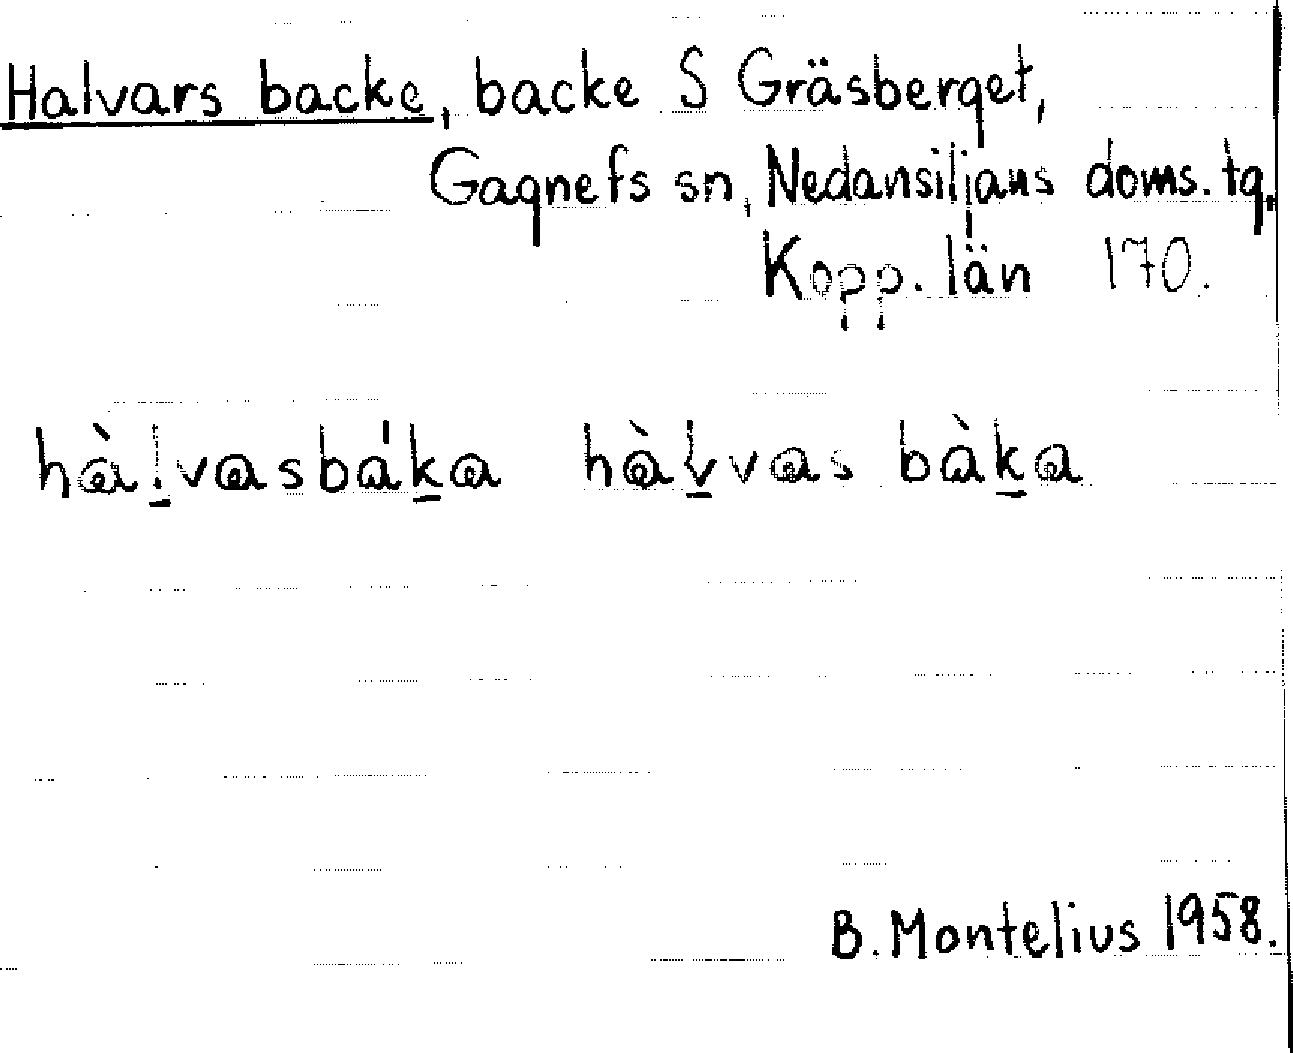 Halvars backe, backe S Gräsberget,
Gagnefs sn, Nedansiljans doms. tg,
Kopp. län 170.
hàl̲vasbák̲a hàl̲vas bàk̲a
B. Montelius 1958.